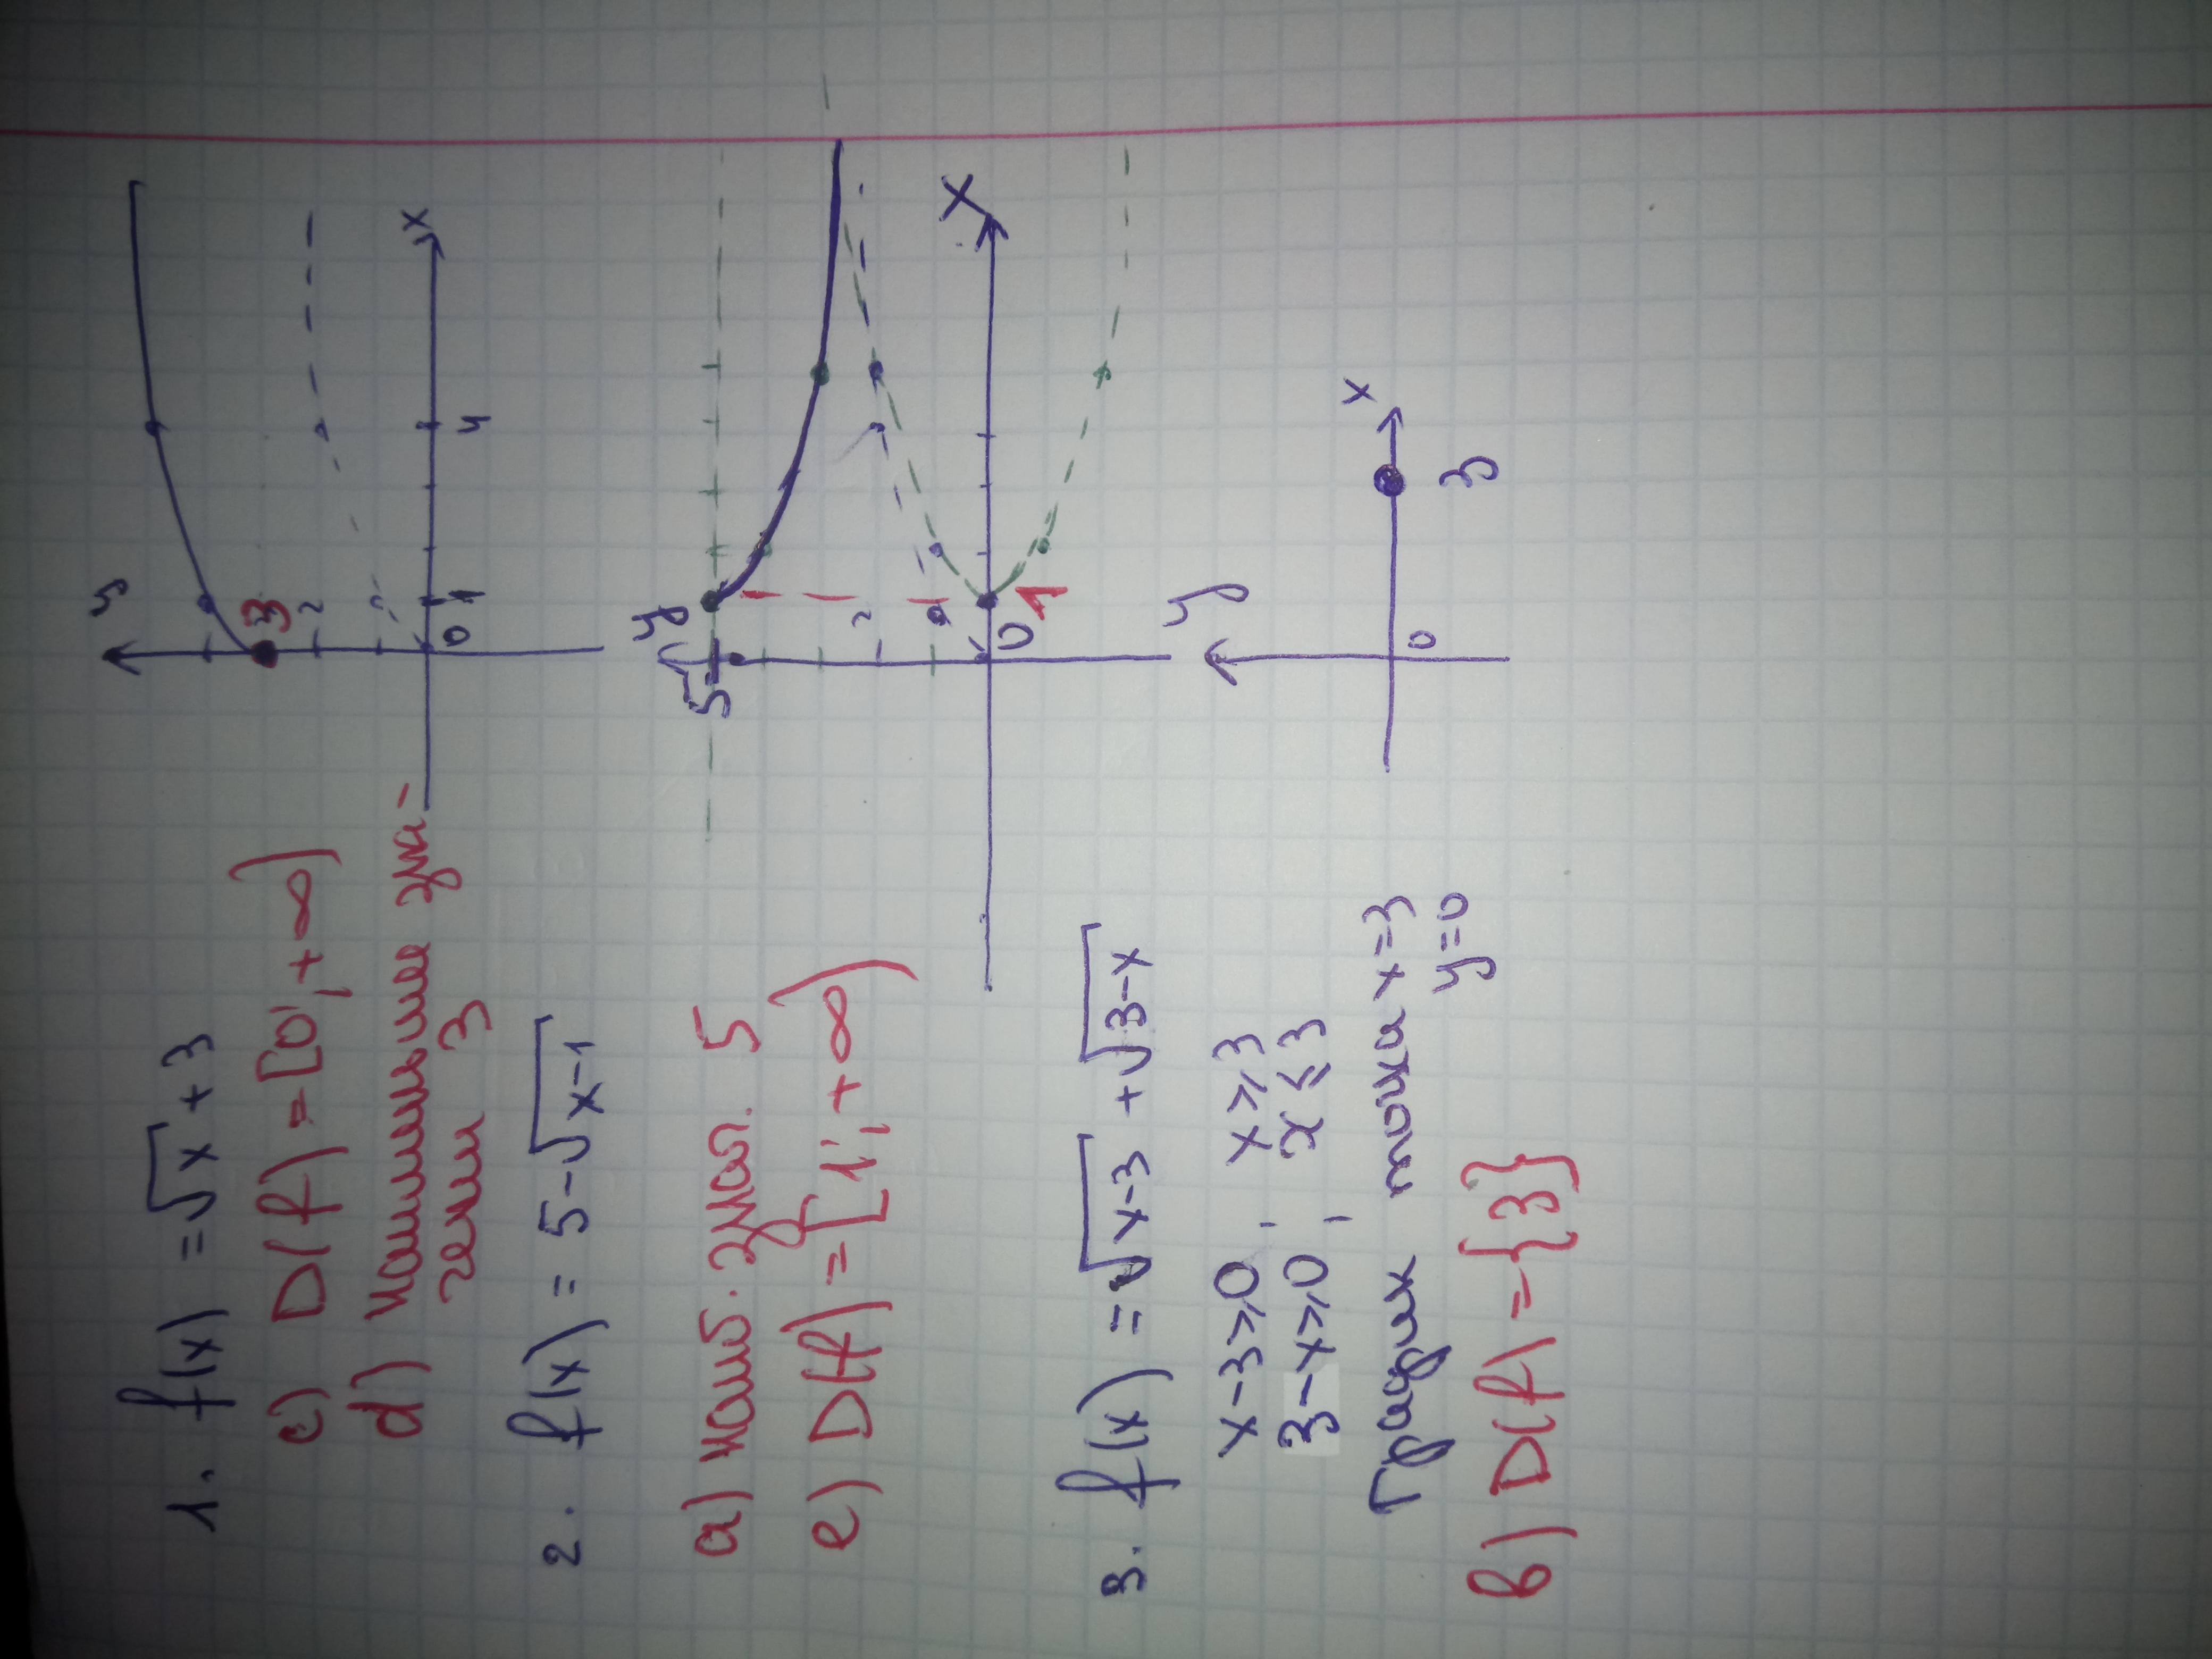 1. f(x) = √x + 3
c) D(f) = [0; +∞)
d) наименьшее зна-
чение 3
y
3
2
0
1
4
x
2. f(x) = 5-√x-1
a) наиб. знач. 5
e) D(f) = [1; +∞)
y
5
2
0
1
x
3. f(x) = √x-3 + √3-x
x-3≥0; x≥3
3-x≥0; x≤3
График точка x=3
y=0
b) D(f) = {3}
y
0
3
x